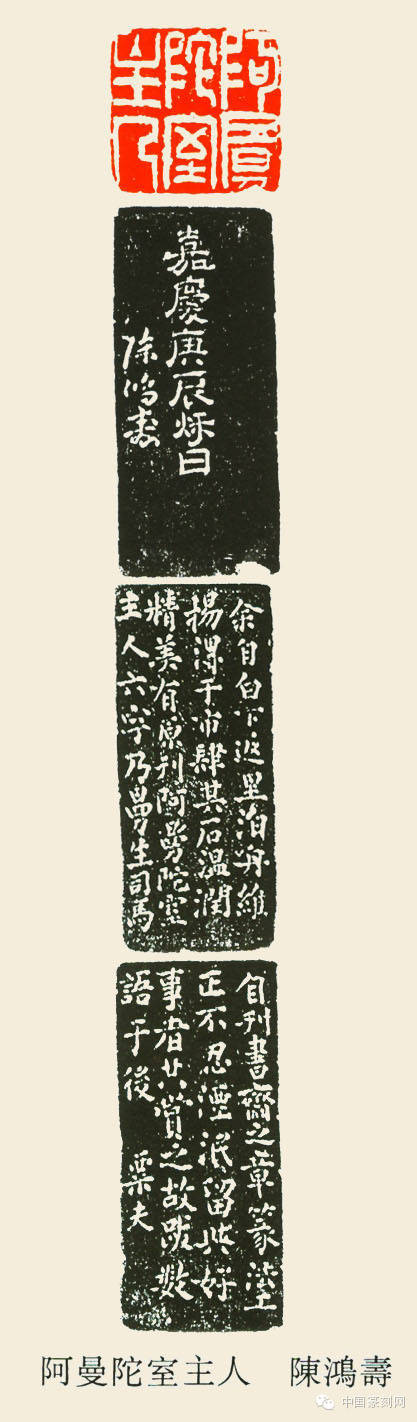 阿曼
陀室
主人
嘉慶庚辰秌日
陳鴻壽
余自白下返里泊舟維
揚得于市肆其石溫潤
精美有原刊阿曼陀室
主人六字乃曼生司馬
自刊書齋之章篆
正不忍湮泯留此好
事者共賞之故跋數
語于後 粟夫
阿曼陀室主人 陳鴻壽
中国篆刻网